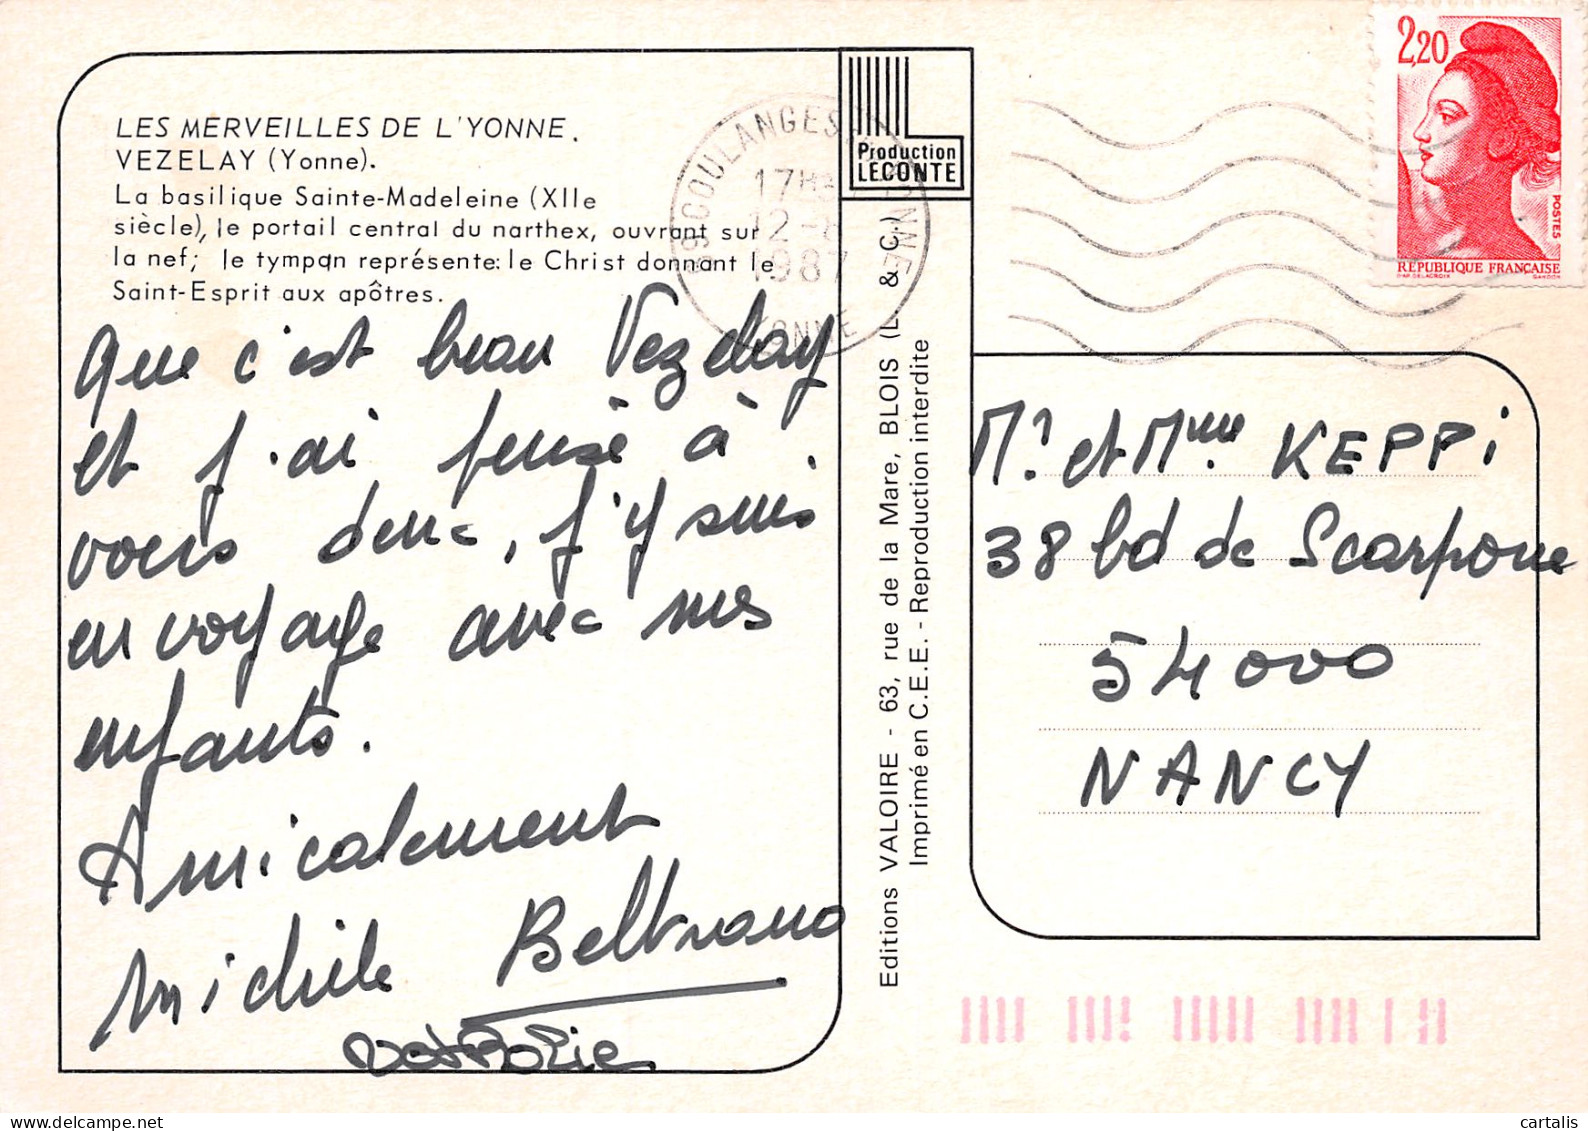 LES MERVEILLES DE L'YONNE.
VEZELAY (Yonne).
La basilique Sainte-Madeleine (XIIe
siècle), le portail central du narthex, ouvrant sur
la nef; le tympan représente: le Christ donnant le
Saint-Esprit aux apôtres.
Que c'est beau Vezelay
et j'ai pensé à
vous donc, j'y suis
en voyage avec mes
enfants.
Amicalement
Michèle Beltramo
Production
LECONTE
89 COULANGES
17H
12 -
1987
YONNE
Editions VALOIRE - 63, rue de la Mare, BLOIS (L. & C.)
Imprimé en C.E.E. - Reproduction interdite
2,20
POSTES
REPUBLIQUE FRANCAISE
D'AP. DELACROIX GANDON
Mr et Mme KEPPi
38 bd de Scarpone
54000
NANCY
cartalis